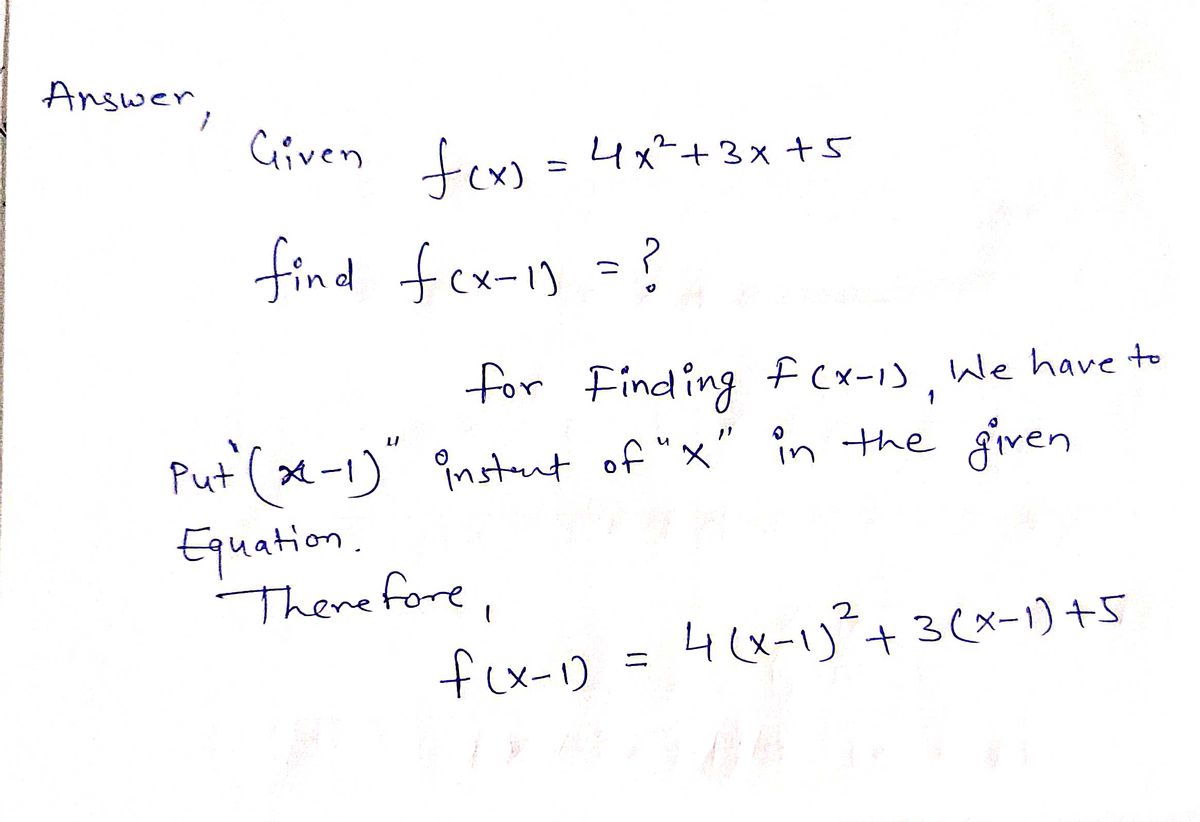 Answer,
Given f(x) = 4x²+3x+5
find f(x-1) = ?
for Finding f(x-1), We have to
Put "(x-1)" instent of "x" in the given
Equation.
Therefore,
f(x-1) = 4(x-1)²+3(x-1)+5